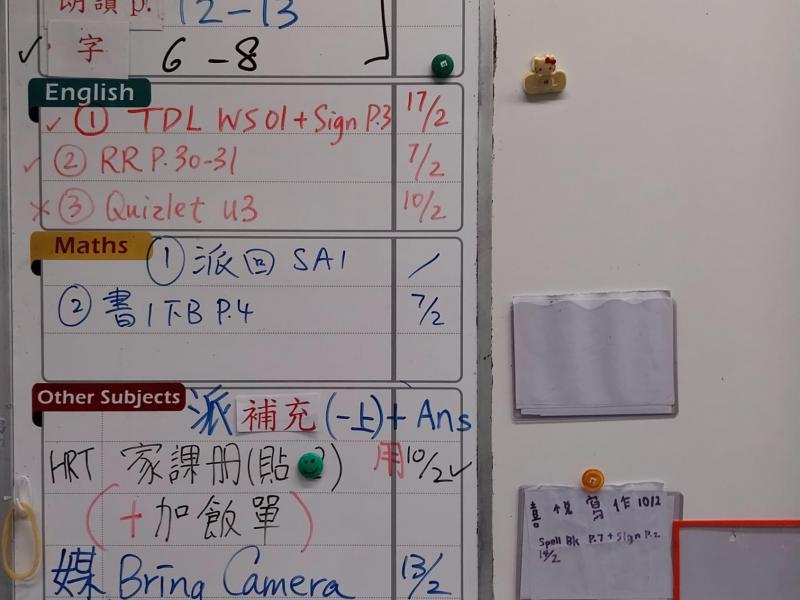 朗讀 p. 12-13
✓ 字 6-8
English
✓ ① TDL WS01+Sign P.3 17/2
✓ ② RR P.30-31 7/2
× ③ Quizlet U3 10/2
Maths
① 派回 SA1 /
② 書1下B P.4 7/2
Other Subjects
派 補充 (一上)+ Ans
HRT 家課冊(貼 ) 用 10/2 ✓
(+加飯單)
媒 Bring Camera 13/2
喜悅寫作 10/2
Spell Bk P.7 + Sign P.2